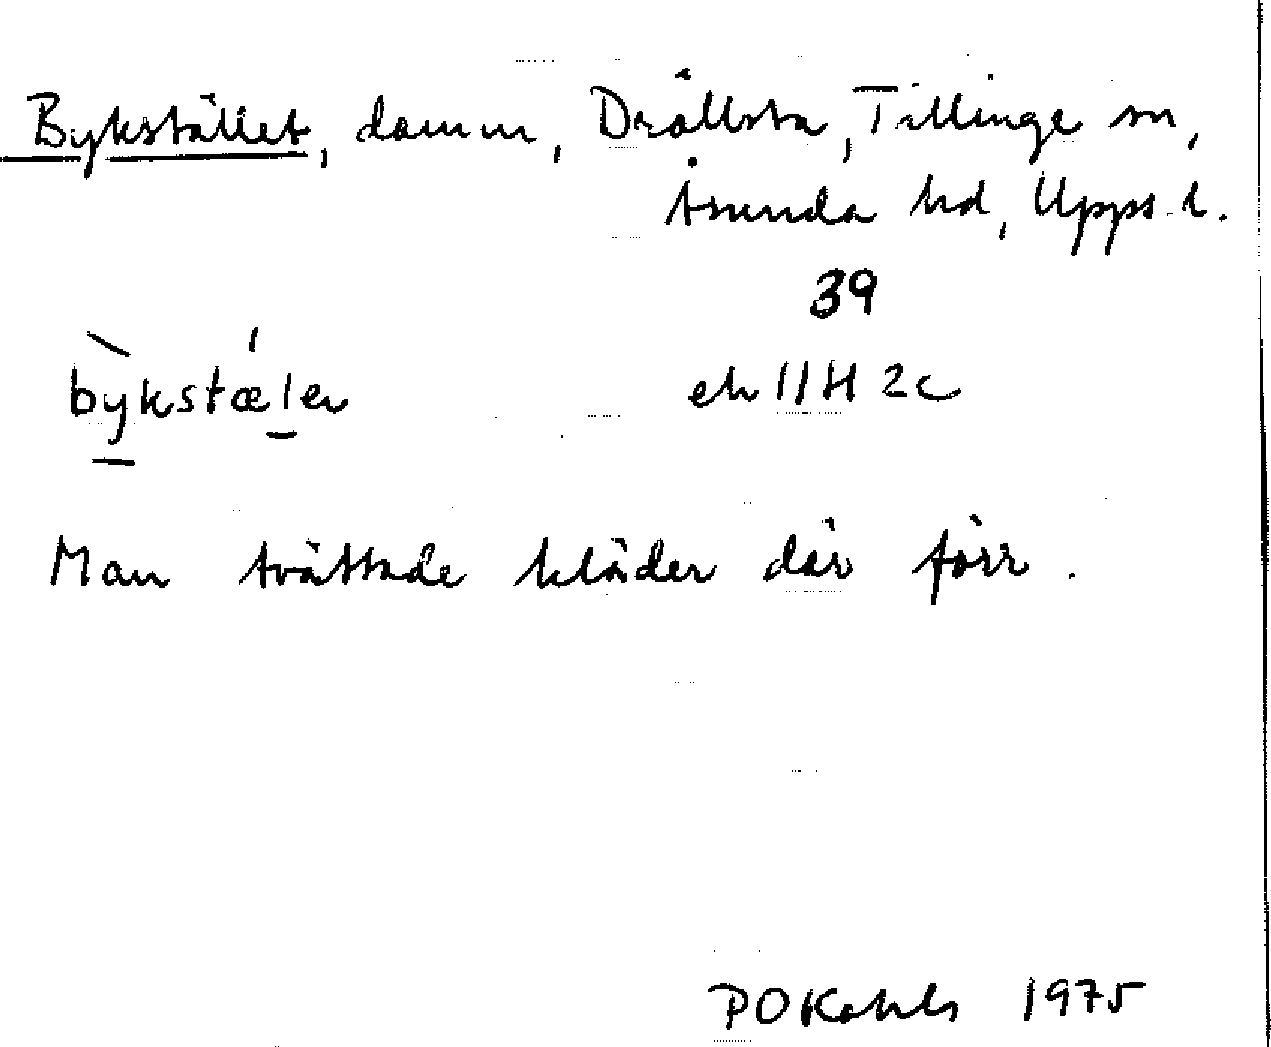 Bykstället, damm, Drällsta, Tillinge sn,
Åsunda hd, Upps. l.
39
bykstælen ek 11H 2c
Man tvättade kläder där förr.
1975